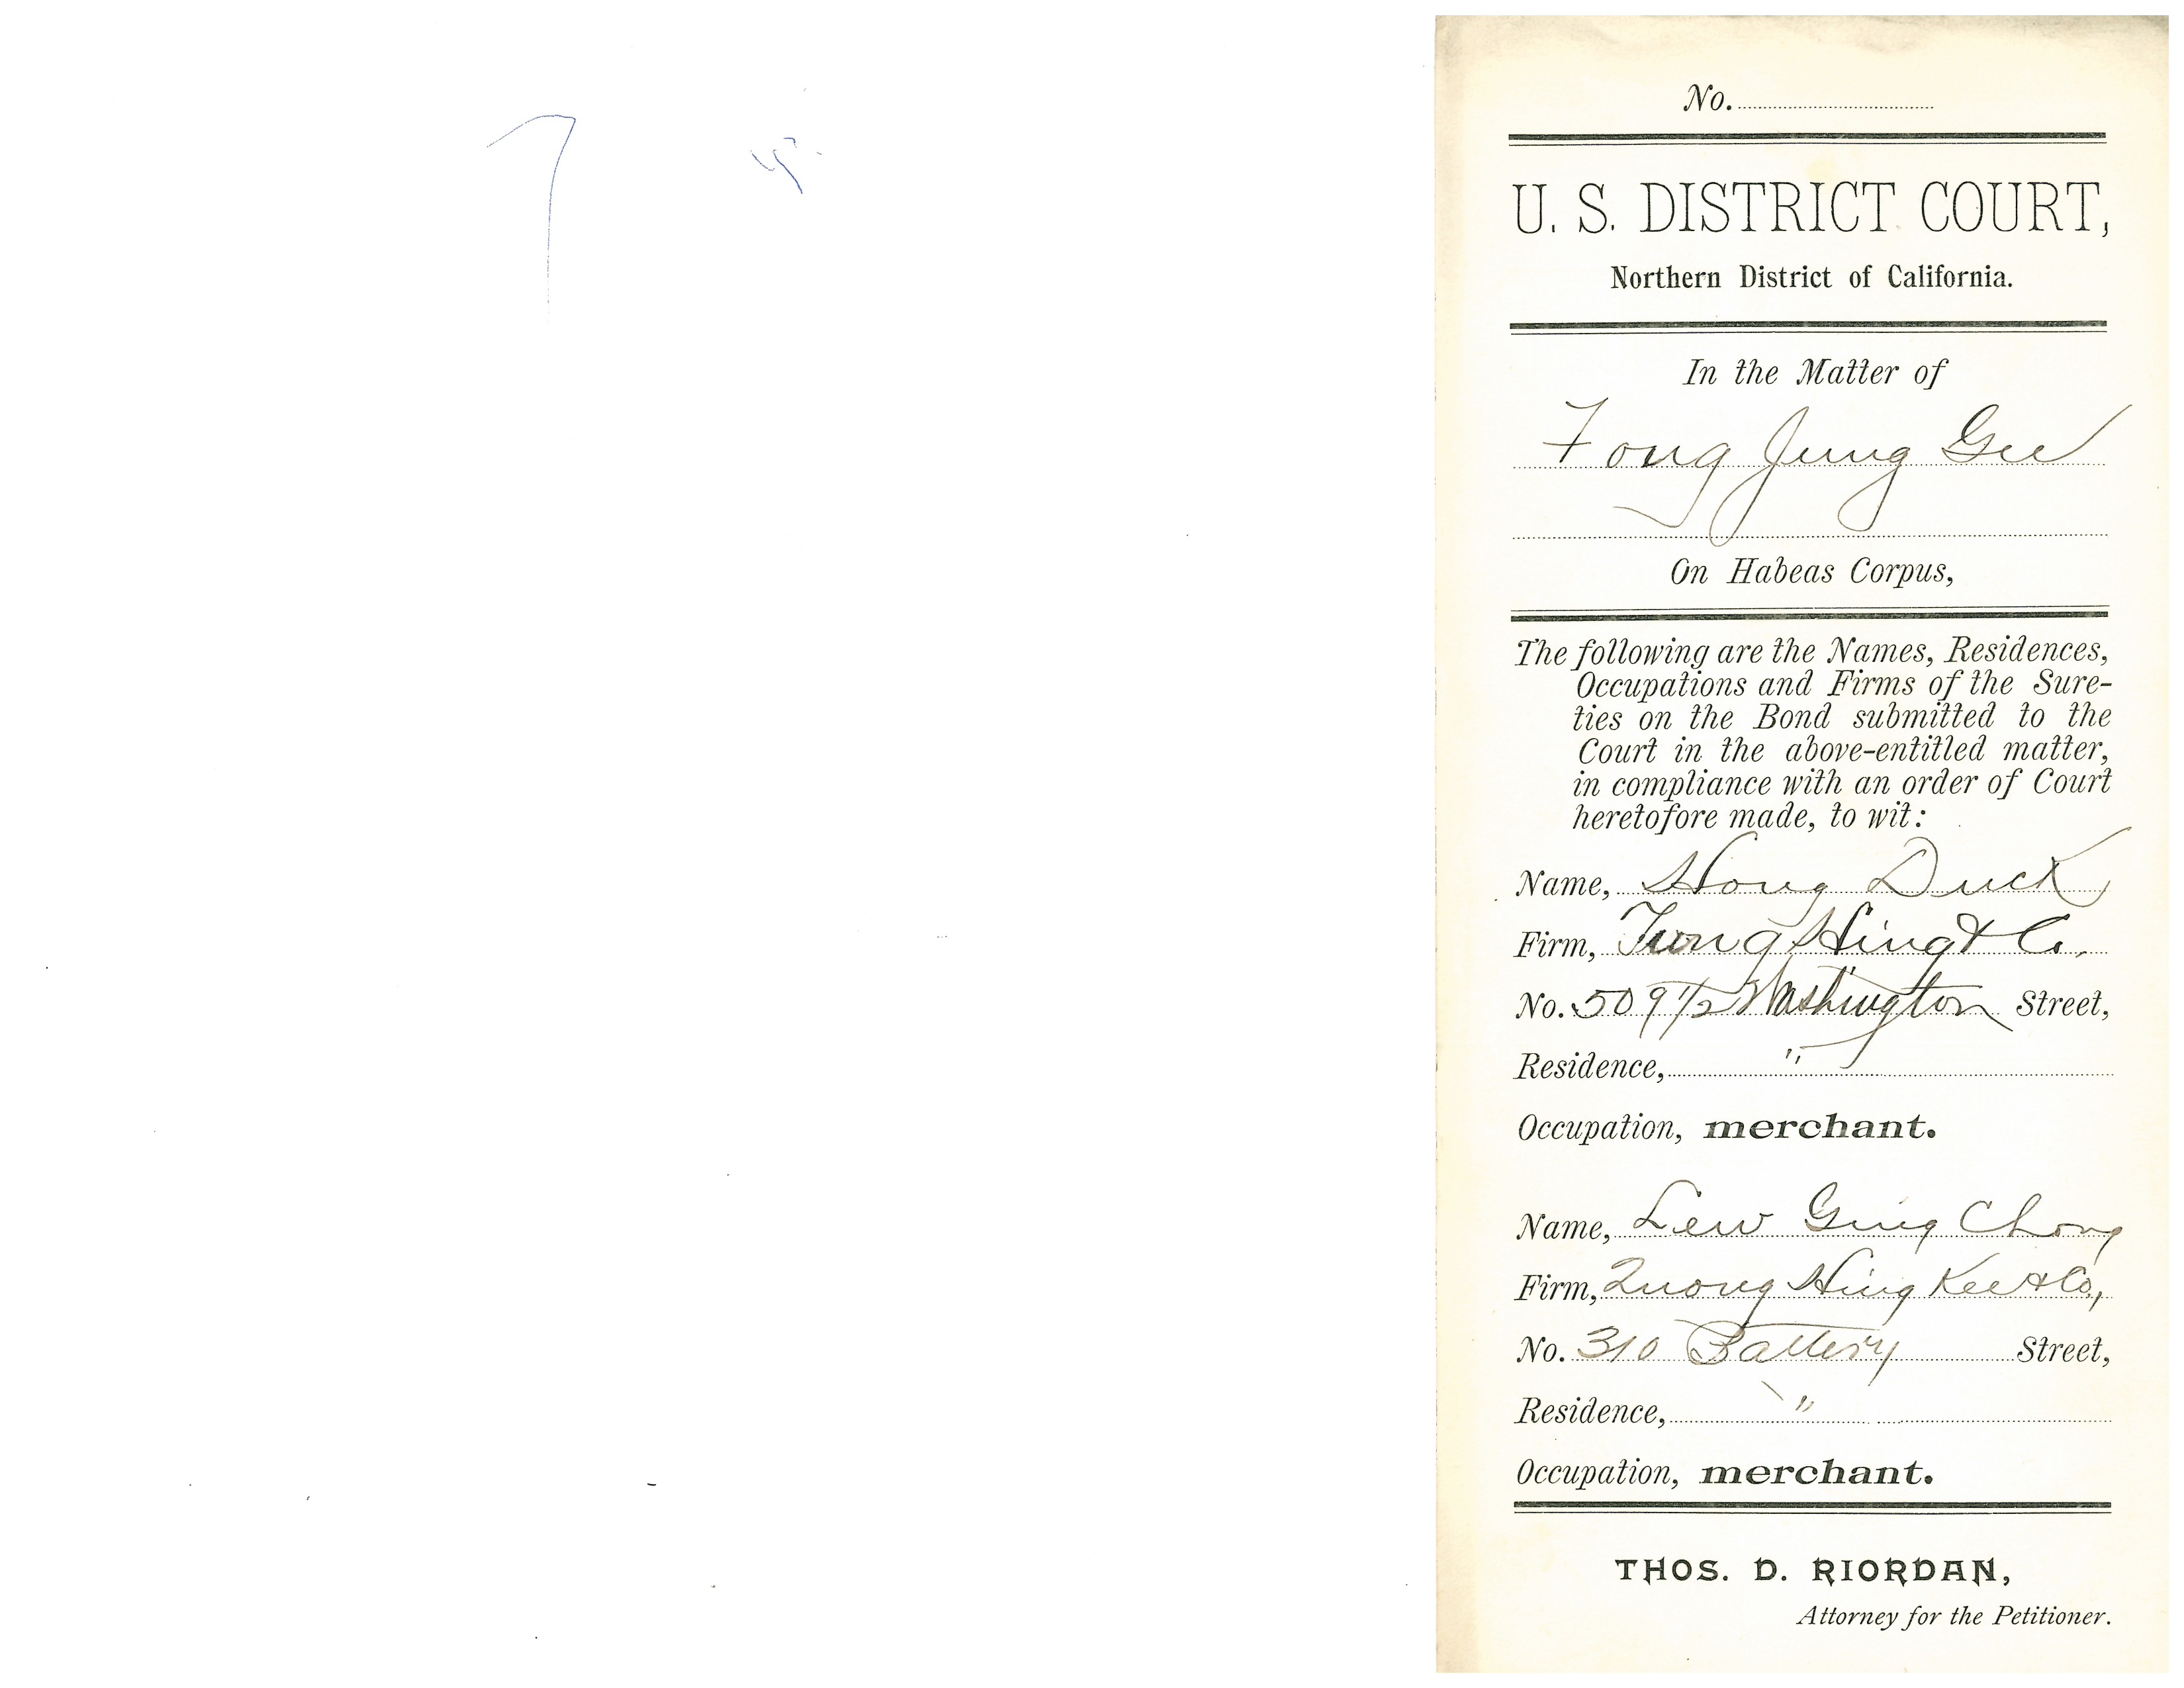 No.
U. S. DISTRICT COURT,
Northern District of California.
In the Matter of
Fong Jung Gee
On Habeas Corpus,
The following are the Names, Residences,
Occupations and Firms of the Sure-
ties on the Bond submitted to the
Court in the above-entitled matter,
in compliance with an order of Court
heretofore made, to wit:
Name, Hong Duck
Firm, Tung Hing & Co.
No. 509 1/2 Washington Street,
Residence, "
Occupation, merchant.
Name, Lew Ging Chong
Firm, Quong Hing Kee & Co,
No. 310 Battery Street,
Residence, "
Occupation, merchant.
THOS. D. RIORDAN,
Attorney for the Petitioner.